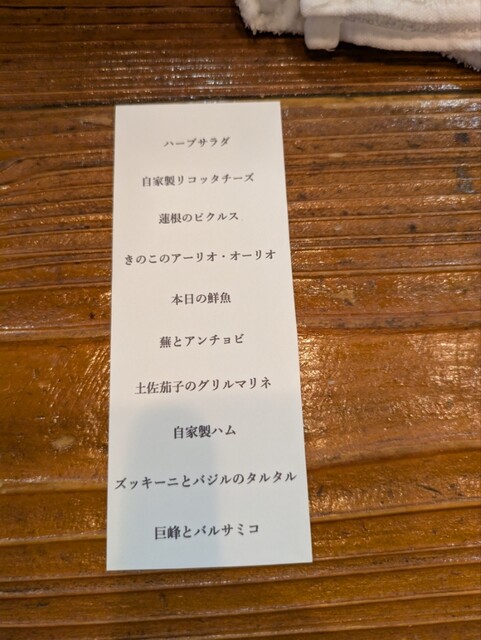 ハーブサラダ
自家製リコッタチーズ
蓮根のピクルス
きのこのアーリオ・オーリオ
本日の鮮魚
蕪とアンチョビ
土佐茄子のグリルマリネ
自家製ハム
ズッキーニとバジルのタルタル
巨峰とバルサミコ